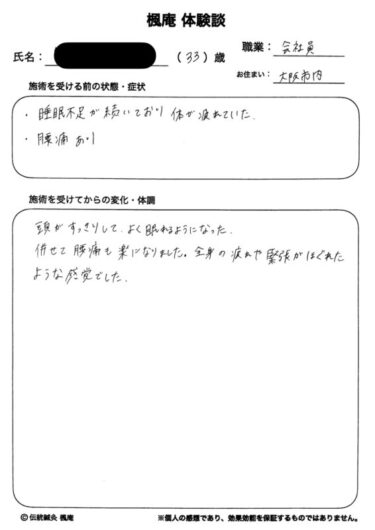 楓庵 体験談
氏名：
（33）歳
職業：会社員
お住まい：大阪市内
施術を受ける前の状態・症状
・睡眠不足が続いており 体が疲れていた.
・腰痛あり
施術を受けてからの変化・体調
頭がすっきりして、よく眠れるようになった.
併せて腰痛も楽になりました。全身の疲れや緊張がほぐれた
ような感覚でした.
© 伝統鍼灸 楓庵
※個人の感想であり、効果効能を保証するものではありません。